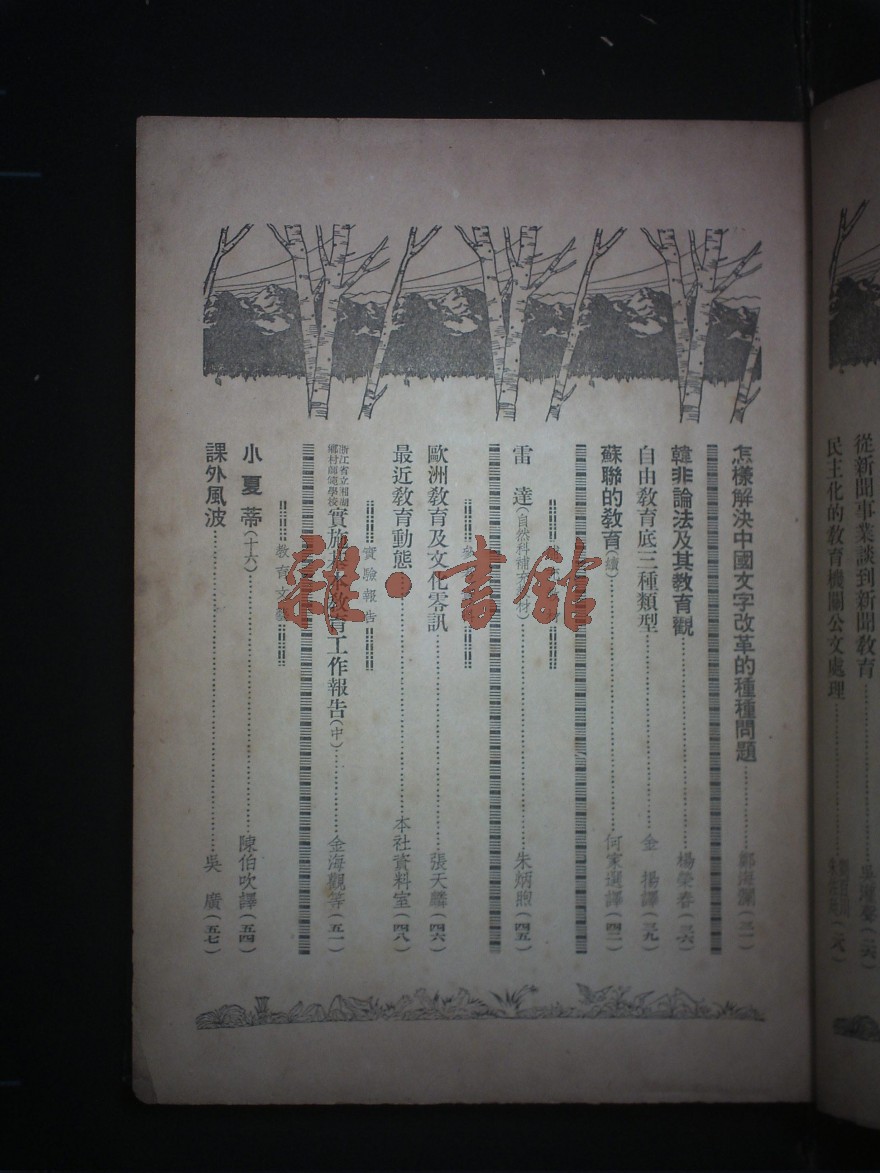 從新聞事業談到新聞教育
民主化的教育機關公文處理
怎樣解決中國文字改革的種種問題 鄭海瀾(三一)
韓非論法及其教育觀 楊榮春(三六)
自由教育底三種類型 金揚譯(三九)
蘇聯的教育(續) 何家選譯(四二)
雷 達(自然科補充 材) 朱炳煦(四五)
歐洲教育及文化零訊 張天麟(四六)
最近教育動態 本社資料室(四八)
實驗報告
浙江省立湘湖鄉村師範學校實施基本教育工作報告(中) 金海觀等(五一)
教育文
小夏蒂(十六) 陳伯吹譯(五四)
課外風波 吳 廣(五七)
雜·書館